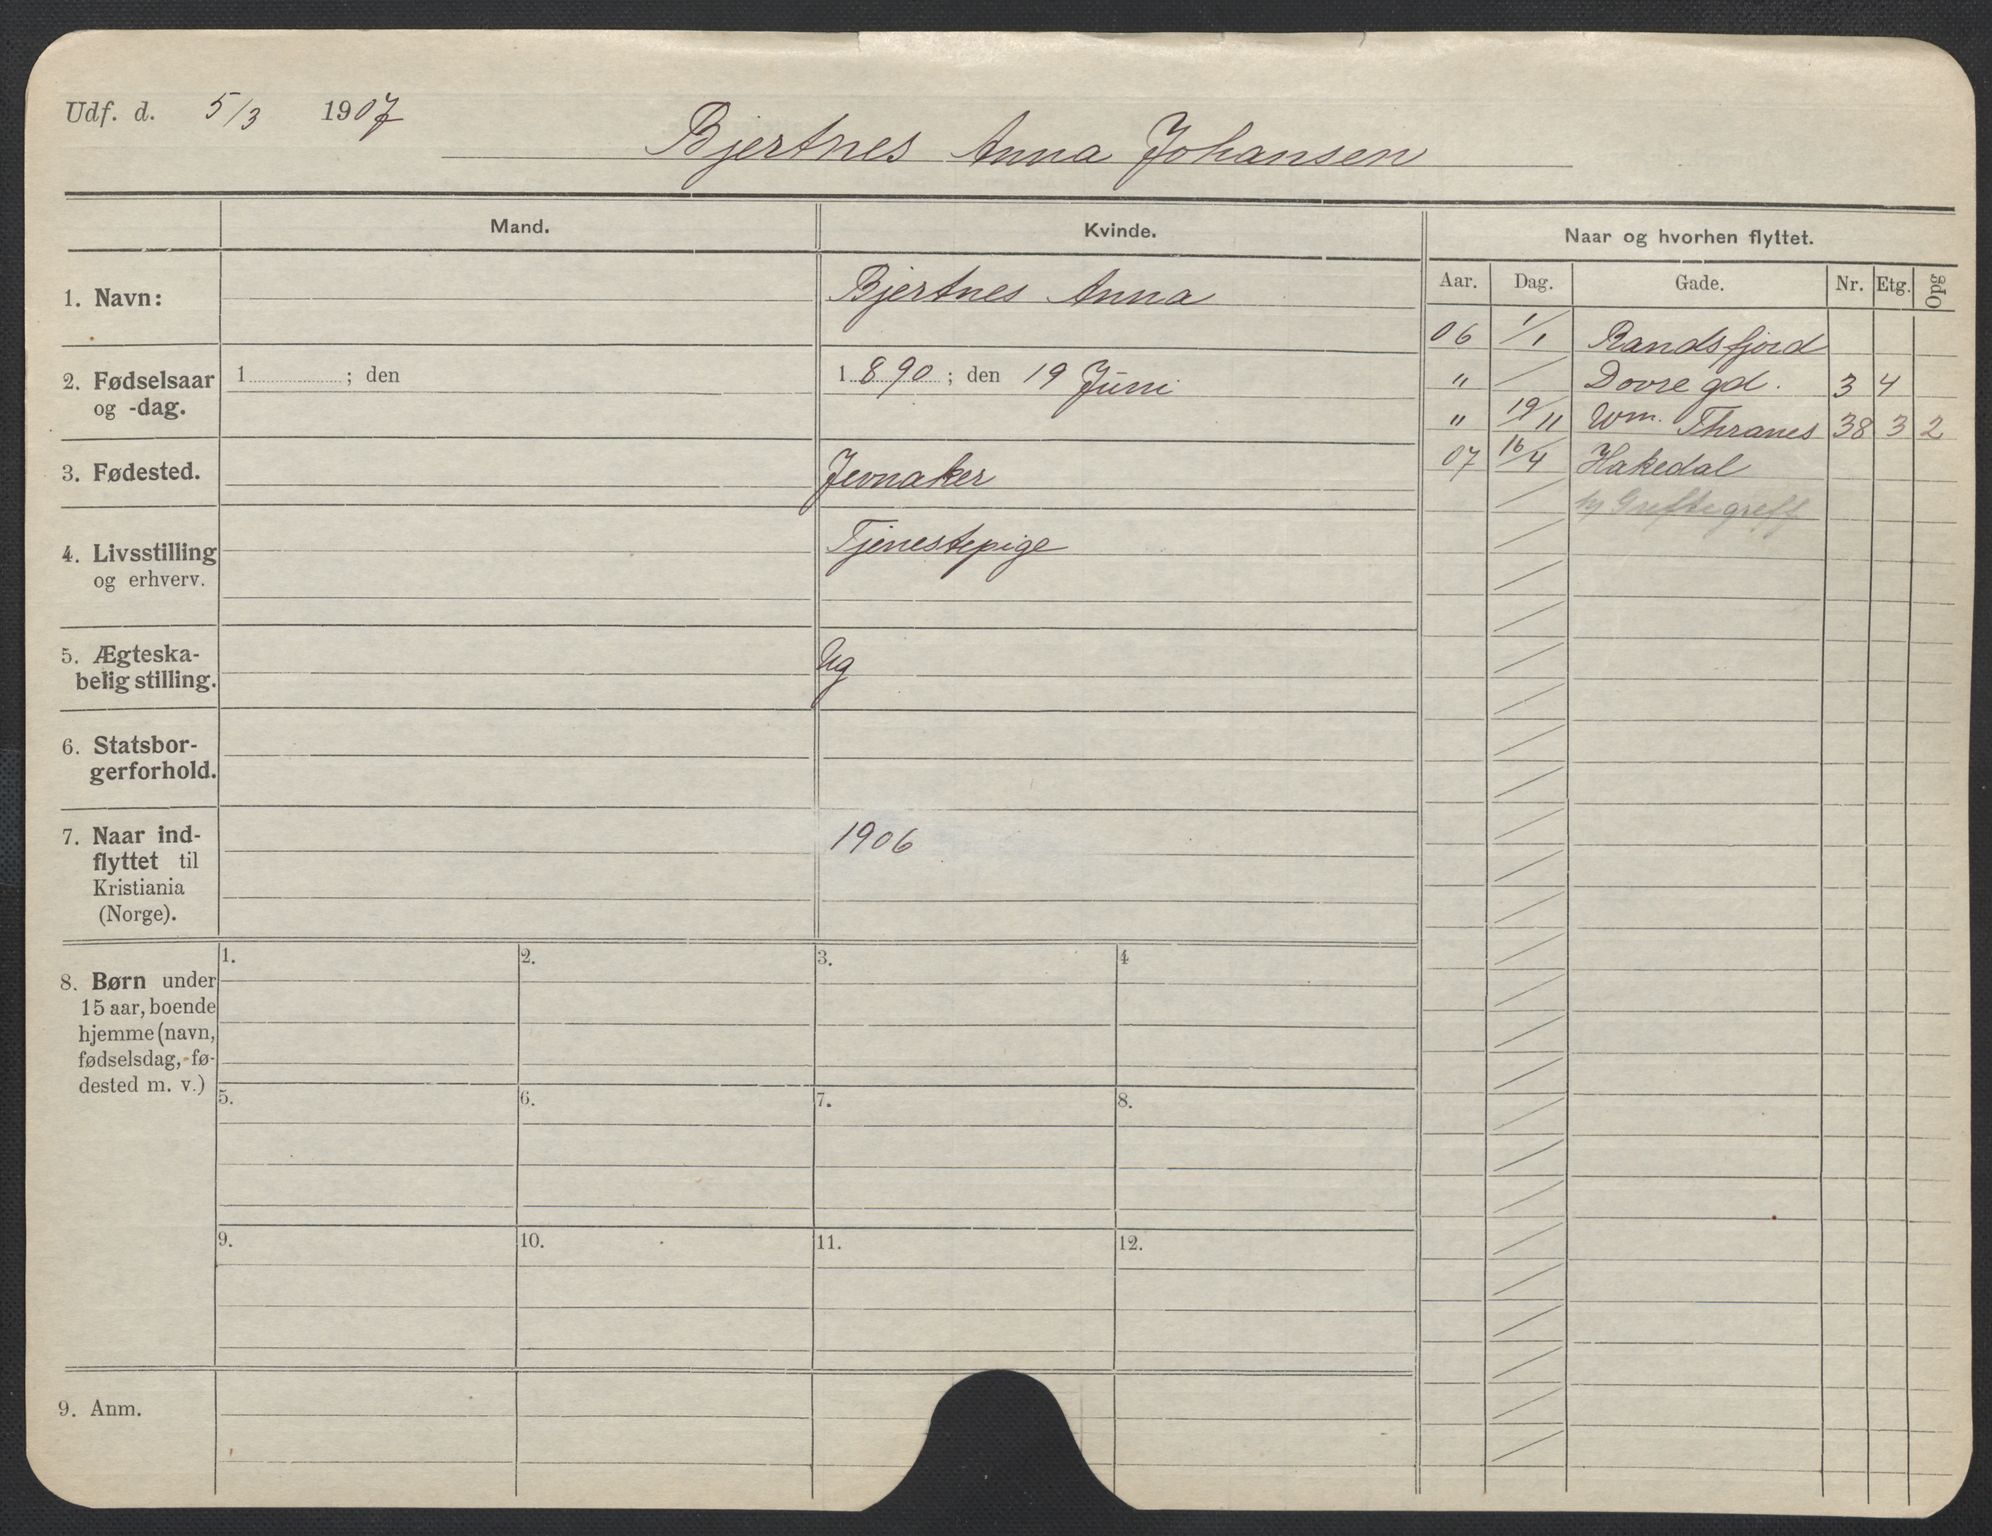 Udf. d. 5/3 1907
Bjertnes Anna Johansen
Mand.
Kvinde.
Naar og hvorhen flyttet.
Aar. Dag. Gade. Nr. Etg. Opg
1. Navn:
Bjertnes Anna
06 1/1 Randsfjord
" Dovre gd. 3 4
" 19/11 Wm. Thranes 38 3 2
07 16/4 Hakedal
2. Fødselsaar
og -dag.
1 ; den
1 890 ; den 19 Juni
3. Fødested.
Jevnaker
4. Livsstilling
og erhverv.
Tjenestepige
5. Ægteska-
belig stilling.
Ug
6. Statsbor-
gerforhold.
7. Naar ind-
flyttet til
Kristiania
(Norge).
1906
8. Børn under
15 aar, boende
hjemme (navn,
fødselsdag, fø-
dested m. v.)
1. 2. 3. 4
5. 6. 7. 8.
9. 10. 11. 12.
9. Anm.